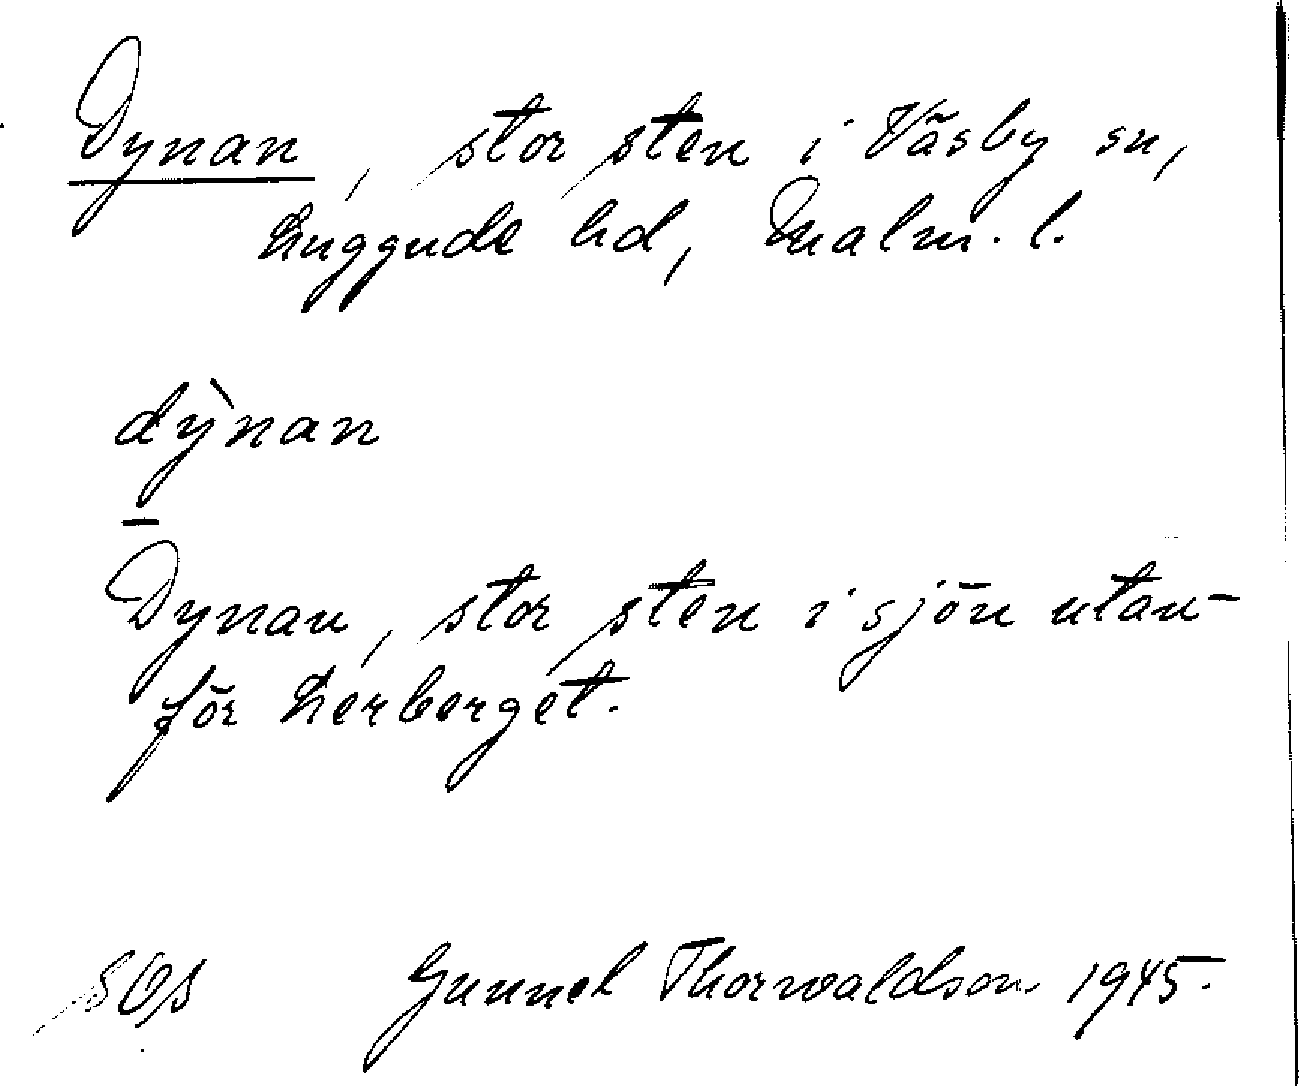 Dynan, stor sten i Väsby sn,
Luggude hd, Malm. l.
dỳnan
–
Dynan, stor sten i sjön utan-
för Lerberget.
Gunnel Thorwaldson 1945.